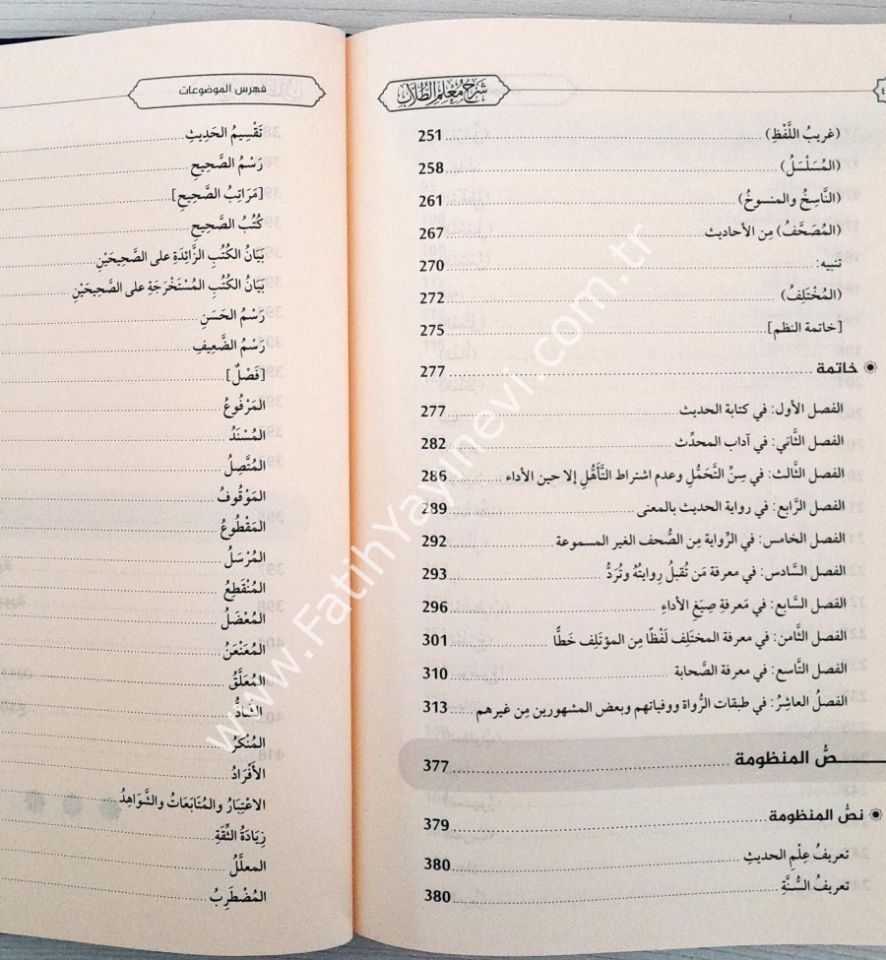 شَرْحُ مُعَلِّمِ الطُّلَّابِ
(غريبُ اللَّفْظِ) 251
(المُسَلْسَلُ) 258
(النَّاسِخُ والمنسوخُ) 261
(المُصَحَّفُ) مِن الأحاديث 267
تنبيه: 270
(المُخْتَلِفُ) 272
[خاتمة النظم] 275
خاتمة 277
الفصل الأول: في كتابة الحديث 277
الفصل الثَّاني: في آداب المحدِّث 282
الفصل الثَّالث: في سِنِّ التَّحَمُّلِ وعدم اشتراط التَّأَهُّلِ إلا حين الأداء 286
الفصل الرَّابع: في رواية الحديث بالمعنى 289
الفصل الخامس: في الرِّواية مِن الصُّحف الغير المسموعة 292
الفصل السَّادس: في معرفة مَن تُقبلُ رِوايتُهُ وتُرَدُّ 293
الفصل السَّابع: في مَعرفةِ صِيَغِ الأداءِ 296
الفصل الثَّامن: في معرفة المختلِف لَفْظًا مِن المؤتَلِف خَطًّا 301
الفصل التَّاسع: في معرفة الصَّحابة 310
الفصلُ العاشِرُ: في طبقات الرُّواة ووفياتهم وبعض المشهورين مِن غيرهم 313
نصُّ المنظومة 377
نصُّ المنظومة 379
تعريفُ عِلْمِ الحديثِ 380
تعريفُ السُّنَّةِ 380
فهرس الموضوعات
تَقْسِيمُ الحَدِيثِ
رَسْمُ الصَّحِيحِ
[مَرَاتِبُ الصَّحِيحِ]
كُتُبُ الصَّحِيحِ
بَيَانُ الكُتُبِ الزَّائِدَةِ على الصَّحِيحَيْنِ
بَيَانُ الكُتُبِ المُسْتَخْرَجَةِ على الصَّحِيحَيْنِ
رَسْمُ الحَسَنِ
رَسْمُ الضَّعِيفِ
[فَصْلٌ]
المَرْفُوعُ
المُسْنَدُ
المُتَّصِلُ
المَوْقُوفُ
المَقْطُوعُ
المُرْسَلُ
المُنْقَطِعُ
المُعْضَلُ
المُعَنْعَنُ
المُعَلَّقُ
الشَّاذُّ
المُنْكَرُ
الأَفْرَادُ
الاعْتِبَارُ والمُتَابَعَاتُ والشَّوَاهِدُ
زِيَادَةُ الثِّقَةِ
المعلَّلُ
المُضْطَرِبُ
www.FatihYayinevi.com.tr